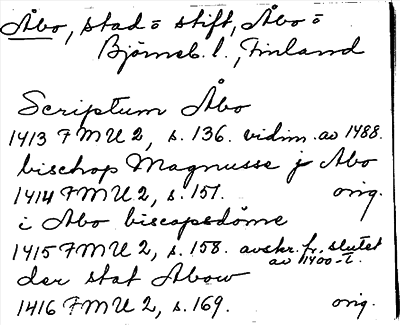 Åbo, stad o stift, Åbo o
Björneb. l., Finland
Scriptum Åbo
1413 FMU 2, s. 136. vidim. av 1488.
bischop Magnusse j Abo
1414 FMU 2, s. 151. orig.
i Abo biscopsdöme
1415 FMU 2, s. 158. avskr. fr. slutet
av 1400-t.
der stat Abow
1416 FMU 2, s. 169. orig.